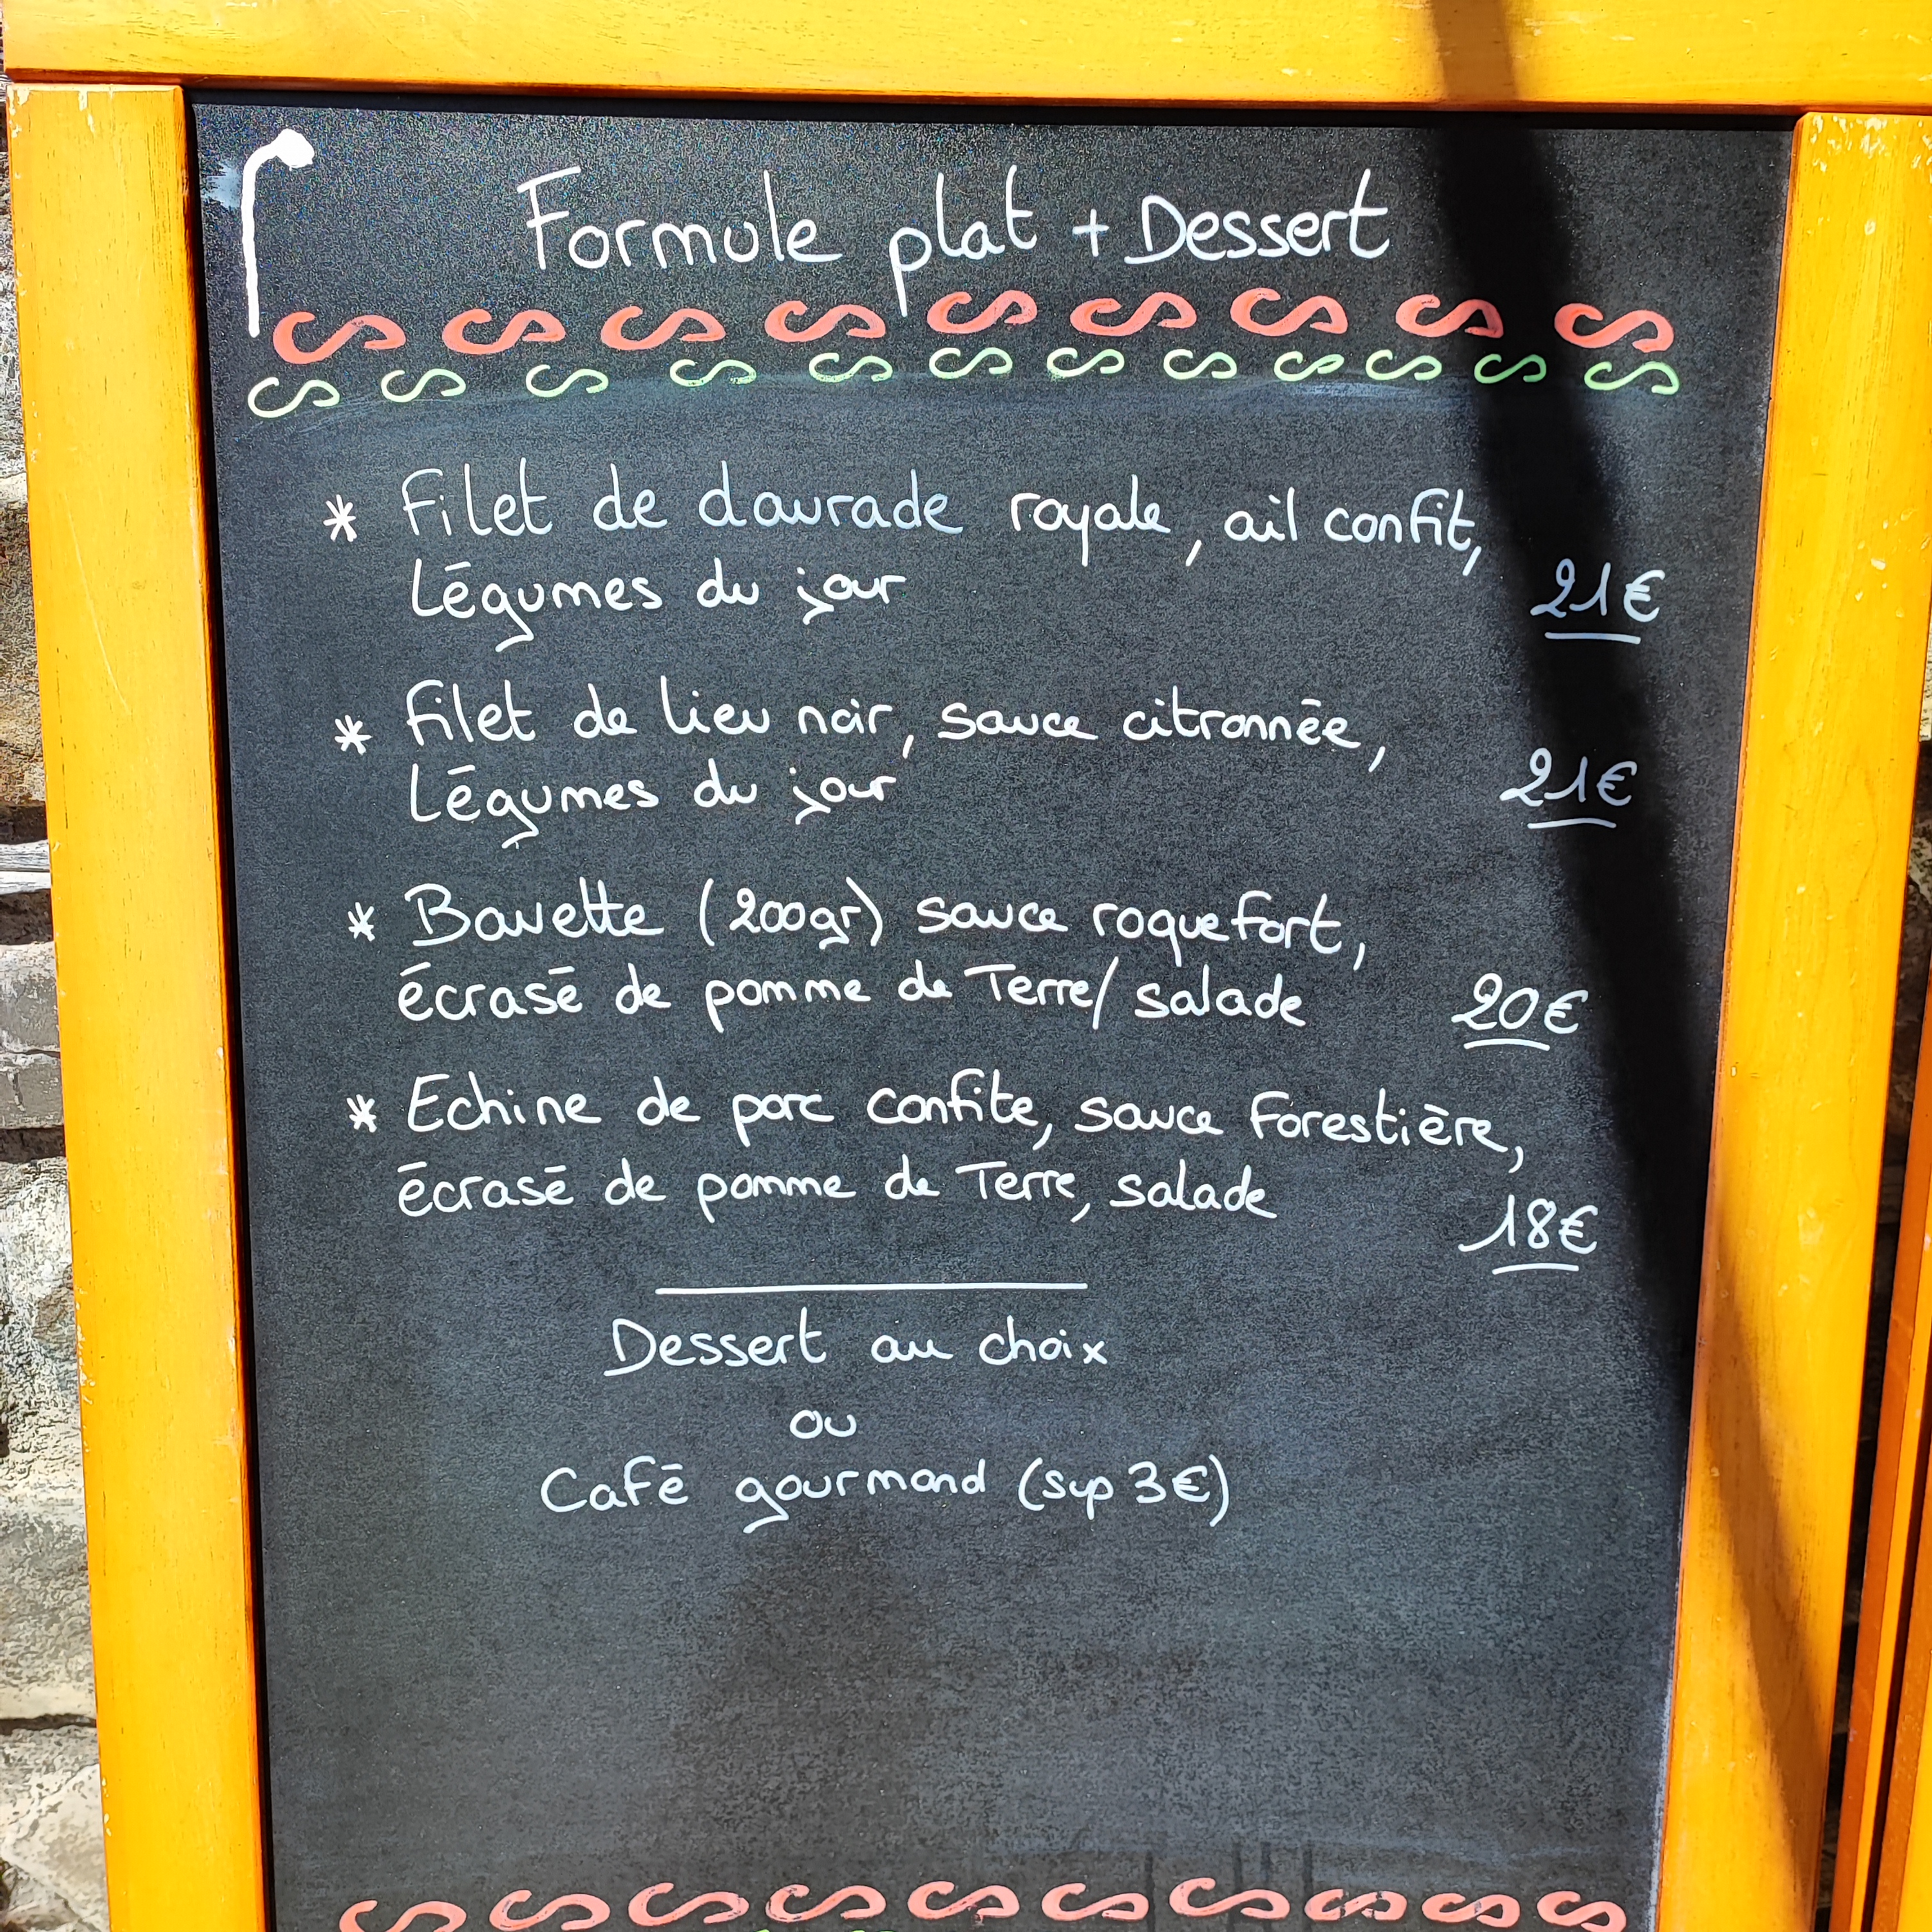 Formule plat + Dessert
* Filet de daurade royale, ail confit,
Légumes du jour 21€
* Filet de lieu noir, sauce citronnée,
Légumes du jour 21€
* Bavette (200gr) sauce roquefort,
écrasé de pomme de Terre/ salade 20€
* Echine de porc confite, sauce Forestière,
écrasé de pomme de Terre, salade 18€
Dessert au choix
ou
Café gourmand (sup 3€)